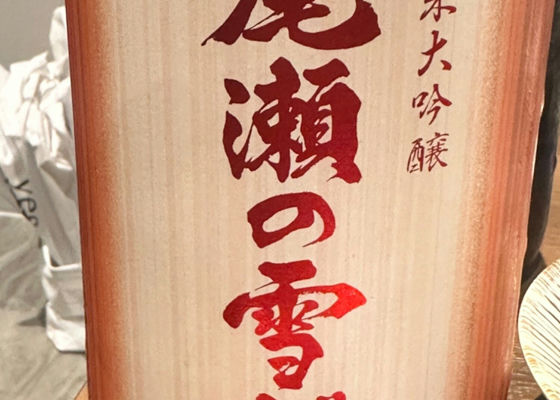 米大吟醸
尾瀬の雪
yes